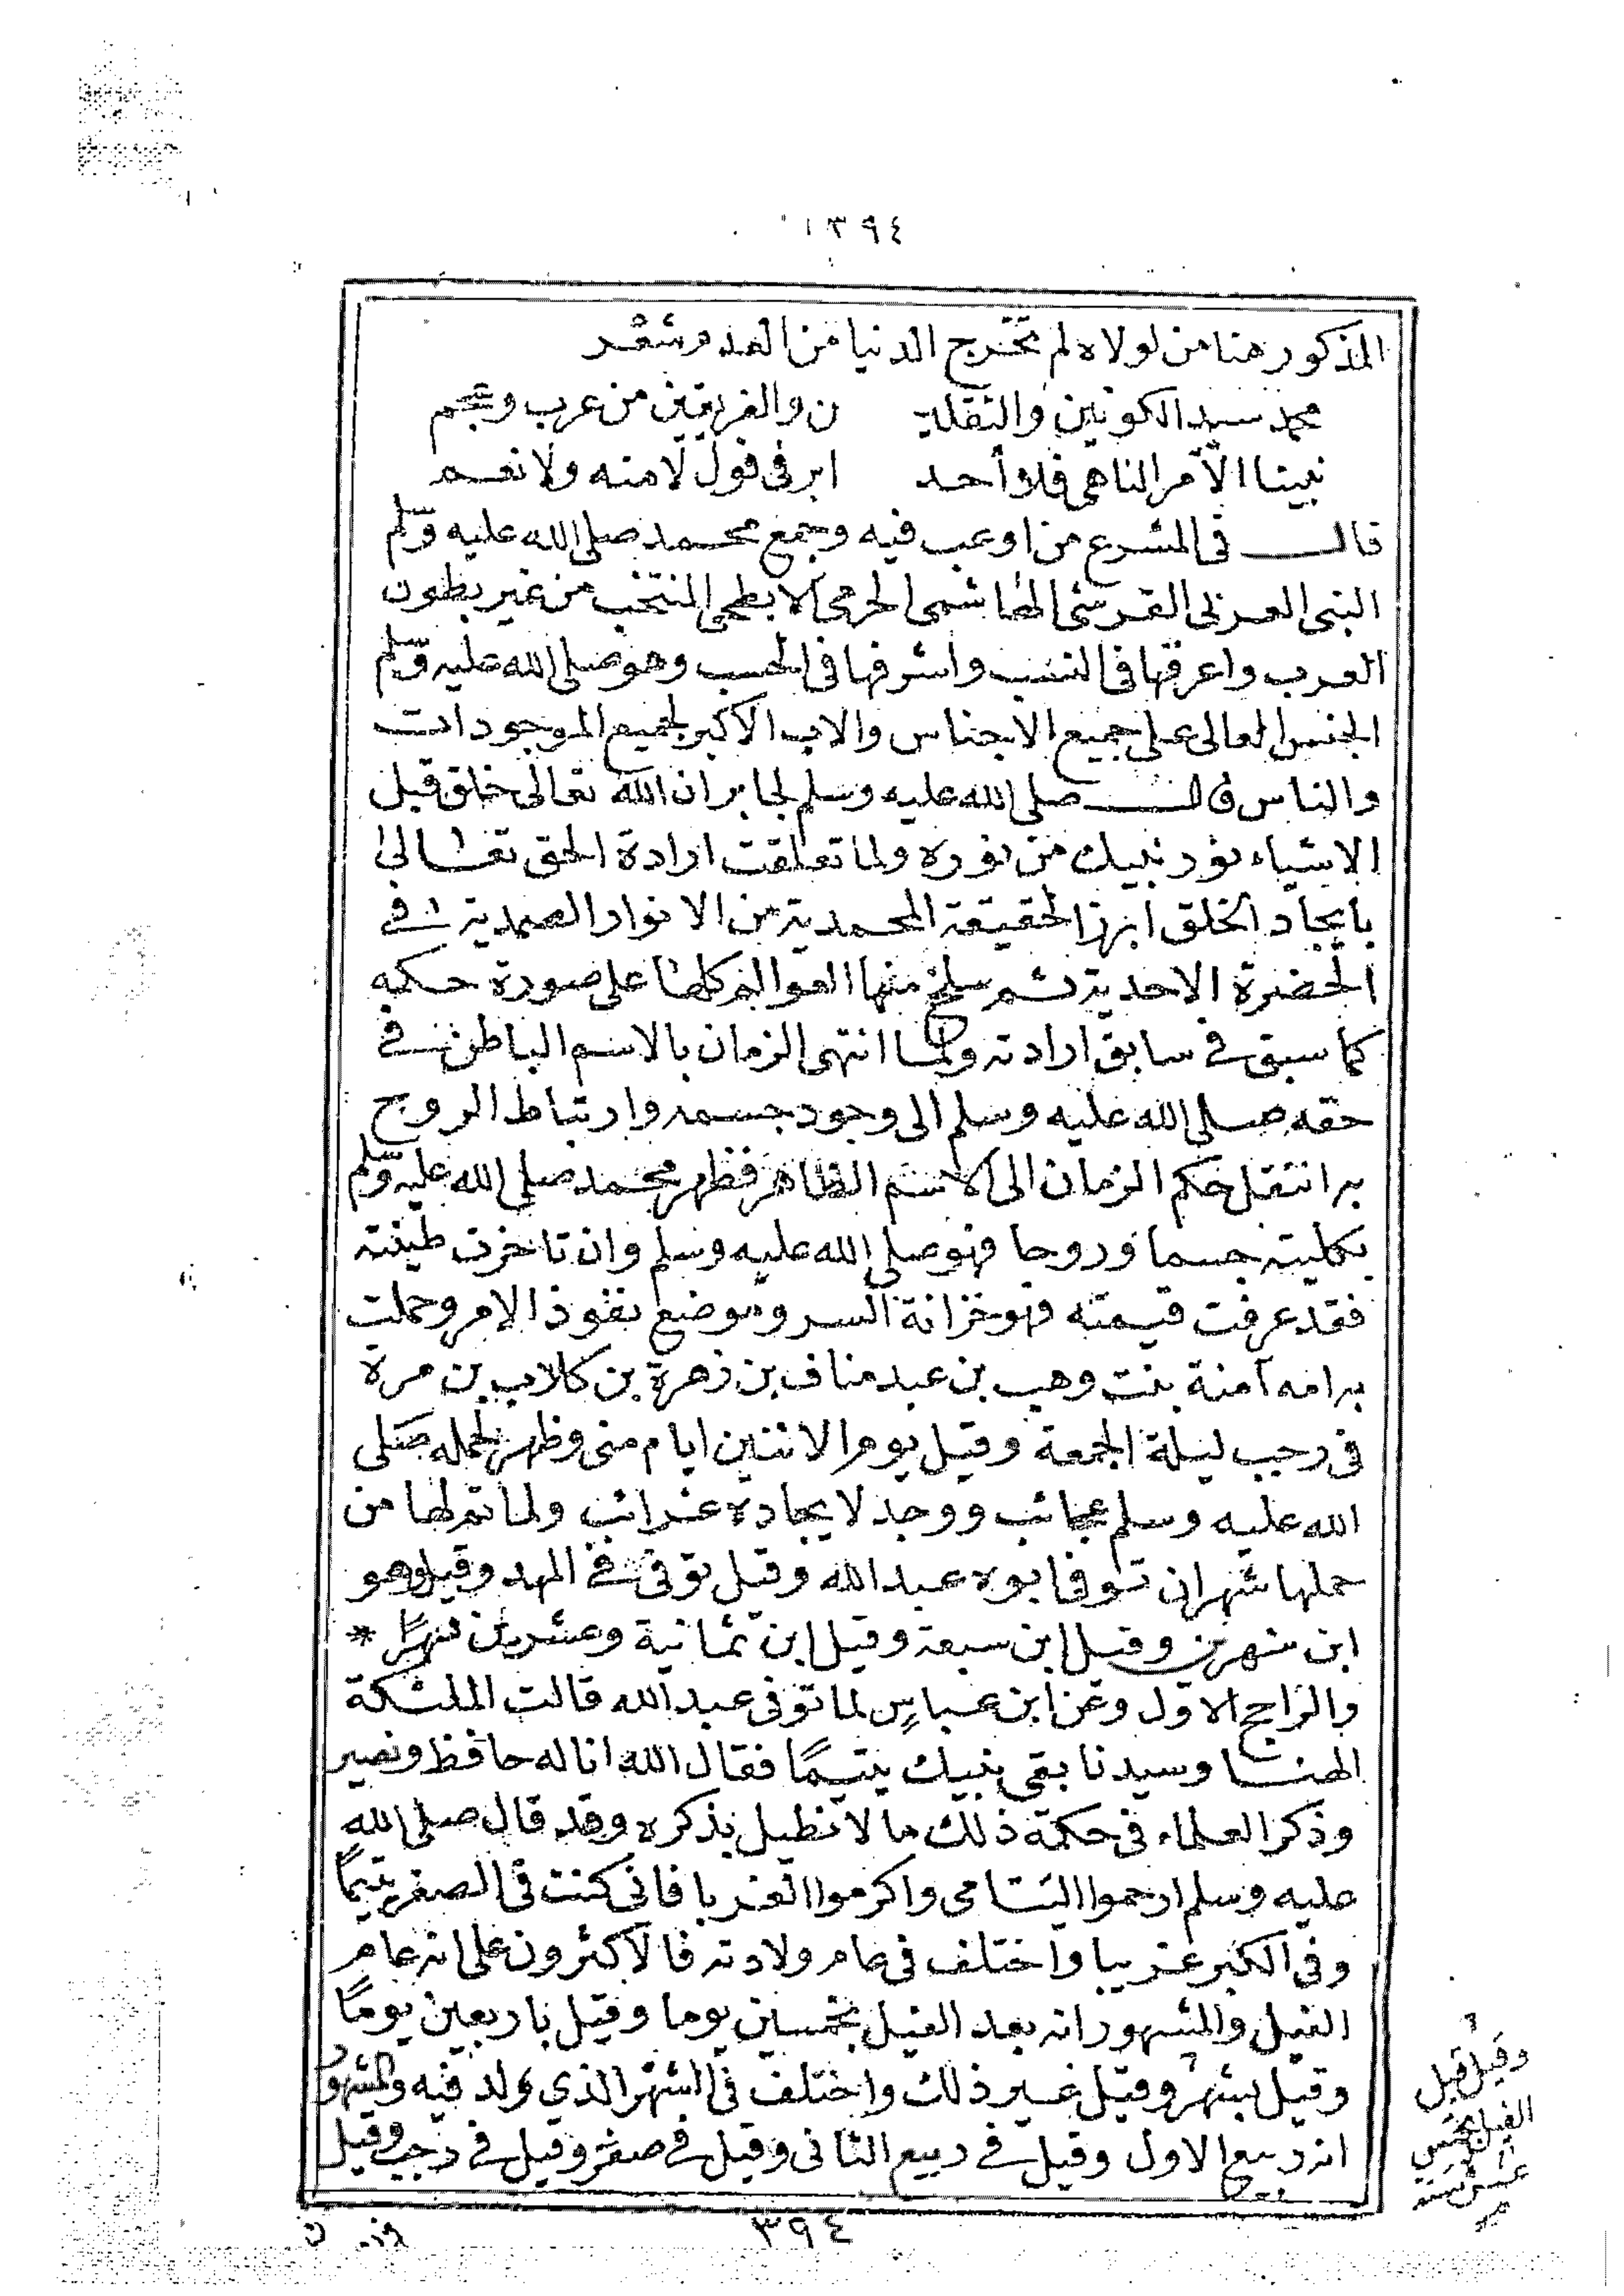 ١٣٩٤
المذكور هنا من لولاه لم تخرج الدنيا من العدم شعر
محمد سيد الكونين والثقليـ ن والفريقين من عرب وعجم
نبينا الآمر الناهى فلا أحد ابر فى قول لا منه ولا نعم
قال فى المشرع من اوعب فيه وجمع محمد صلى الله عليه وسلم
النبى العربى القرشى الهاشمى الحرمى الابطحى المنتخب من غير بطون
العرب واعرقها فى النسب واشرفها فى الحسب وهو صلى الله عليه وسلم
الجنس العالى على جميع الاجناس والاب الاكبر لجميع الموجودات
والناس قال صلى الله عليه وسلم لجابر ان الله تعالى خلق قبل
الاشياء نور نبيك من نوره ولما تعلقت ارادة الحق تعالى
بايجاد الخلق ابرز الحقيقة المحمدية من الانوار الصمدية فى
الحضرة الاحدية ثم سلخ منها العوالم كلها على صورة حكمه
كما سبق فى سابق ارادته ولما انتهى الزمان بالاسم الباطن فى
حقه صلى الله عليه وسلم الى وجود جسمه وارتباط الروح
به انتقل حكم الزمان الى الاسم الظاهر فظهر محمد صلى الله عليه وسلم
بكليته جسما وروحا فهو صلى الله عليه وسلم وان تاخرت طينته
فقد عرفت قيمته فهو خزانة السر وموضع نفوذ الامر وحملت
به امه آمنة بنت وهب بن عبد مناف بن زهرة بن كلاب بن مرة
فى رجب ليلة الجمعة وقيل يوم الاثنين ايام منى وظهر لحمله صلى
الله عليه وسلم عجائب ووجد لايجاده غرائب ولما تم لها من
حملها شهران توفى ابوه عبد الله وقيل توفى فى المهد وقيل وهو
ابن شهرين وقيل ابن سبعة وقيل ابن ثمانية وعشرين شهرًا *
والراجح الاول وعن ابن عباس لما توفى عبد الله قالت الملئكة
الهنا وسيدنا بقى نبيك يتيمًا فقال الله انا له حافظ ونصير
وذكر العلماء فى حكمة ذلك ما لا نطيل بذكره وقد قال صلى الله
عليه وسلم ارحموا اليتامى واكرموا الغربا فانى كنت فى الصغر يتيمًا
وفى الكبر غريبا واختلف فى عام ولادته فالاكثرون على انه عام
الفيل والمشهور انه بعد الفيل بخمسين يوما وقيل باربعين يومًا
وقيل بشهر وقيل غير ذلك واختلف فى الشهر الذي ولد فيه والمشهور
انه ربيع الاول وقيل فى ربيع الثانى وقيل فى صفر وقيل فى رجب وقيل
وقيل قبل
الفيل بخمس
عشرة سنة
٣٩٤